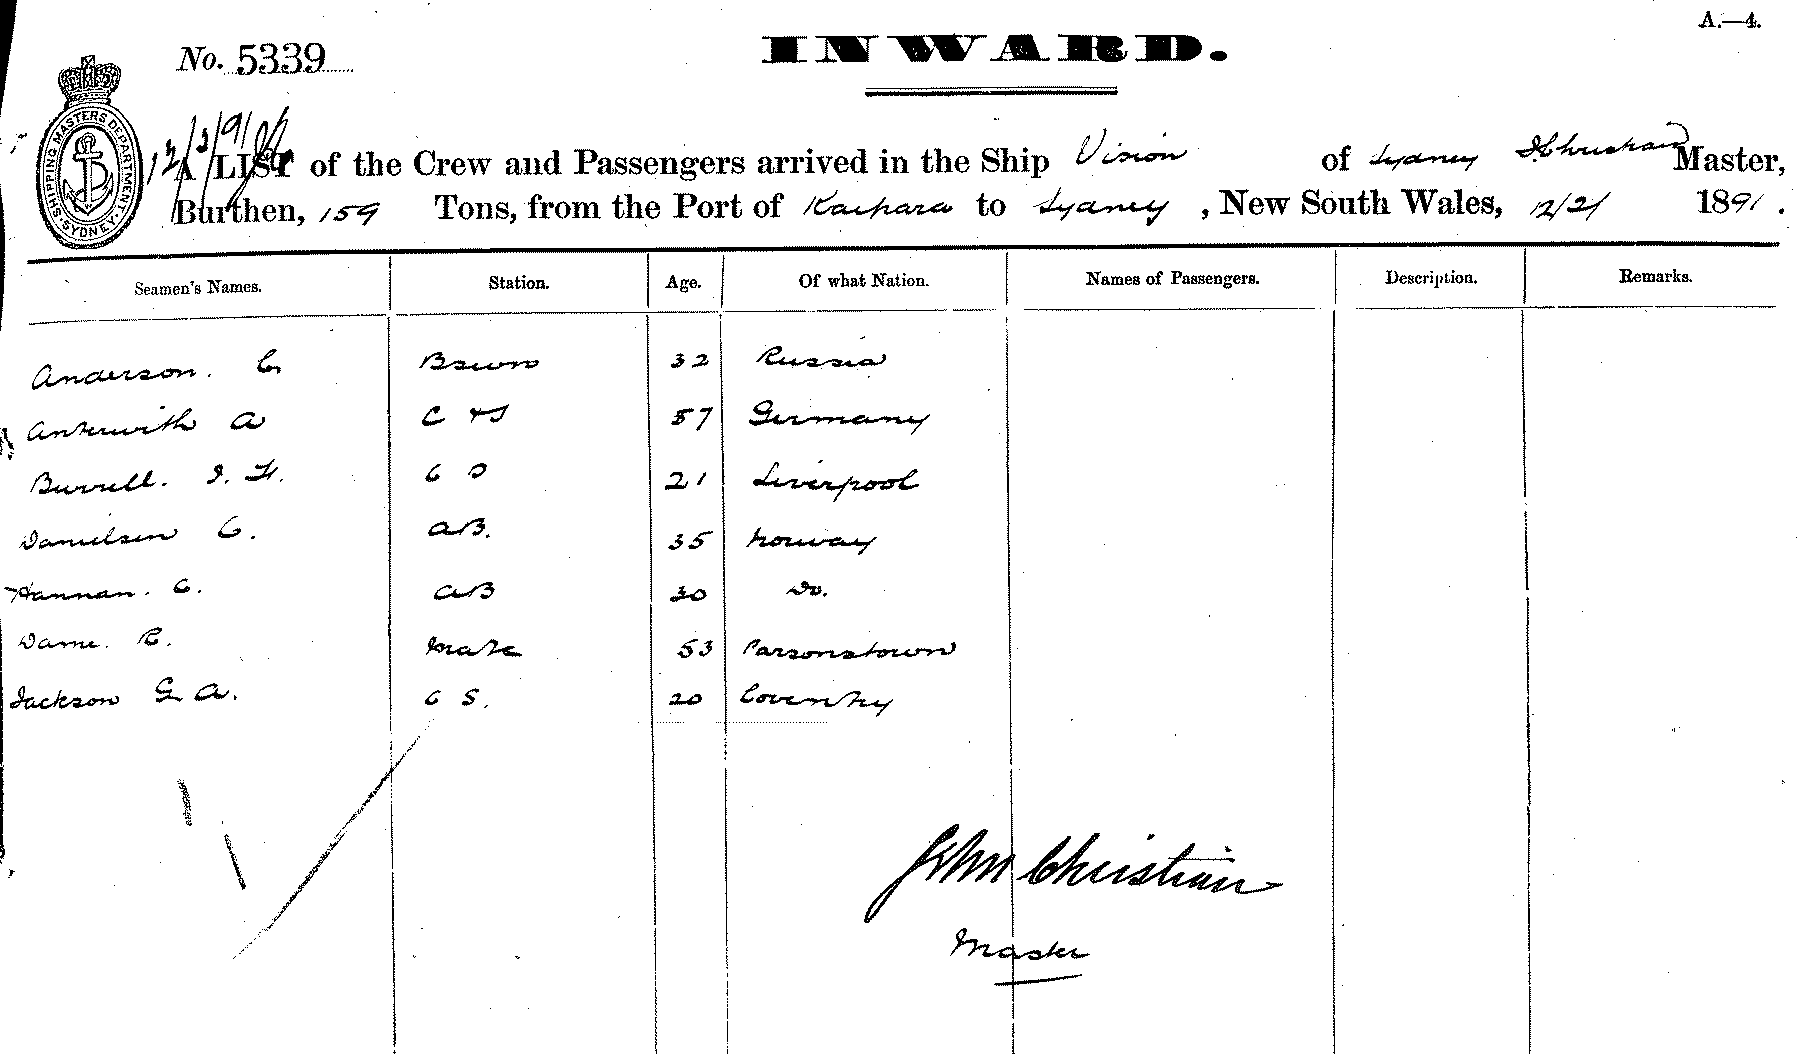 A.—4.
No. 5339
INWARD.
SHIPPING MASTERS DEPARTMENT. SYDNEY
12/2/91
A LIST of the Crew and Passengers arrived in the Ship Vision of Sydney J. Christian Master,
Burthen, 159 Tons, from the Port of Kaipara to Sydney, New South Wales, 12/2/ 1891.
Seamen's Names. Station. Age. Of what Nation. Names of Passengers. Description. Remarks.
Anderson. C. 32 Russia
A C & S 57 Germany
Burrell. J. H. O S 21 Liverpool
Danielsen C. AB. 35 Norway
Hannan. C. AB 30 Do.
R. Mate 53 Parsonstown
Jackson G. A. O S. 20 Coventry
John Christian
Master